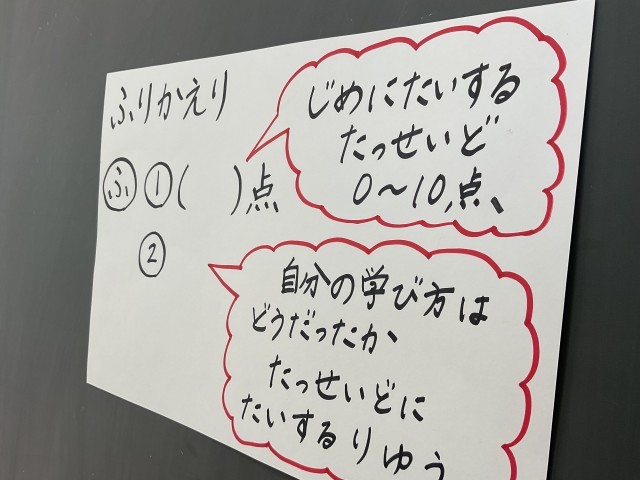 ふりかえり
じめにたいする
たっせいど
0〜10点、
ふ ①( )点
②
自分の学び方は
どうだったか、
たっせいどに
たいするりゆう